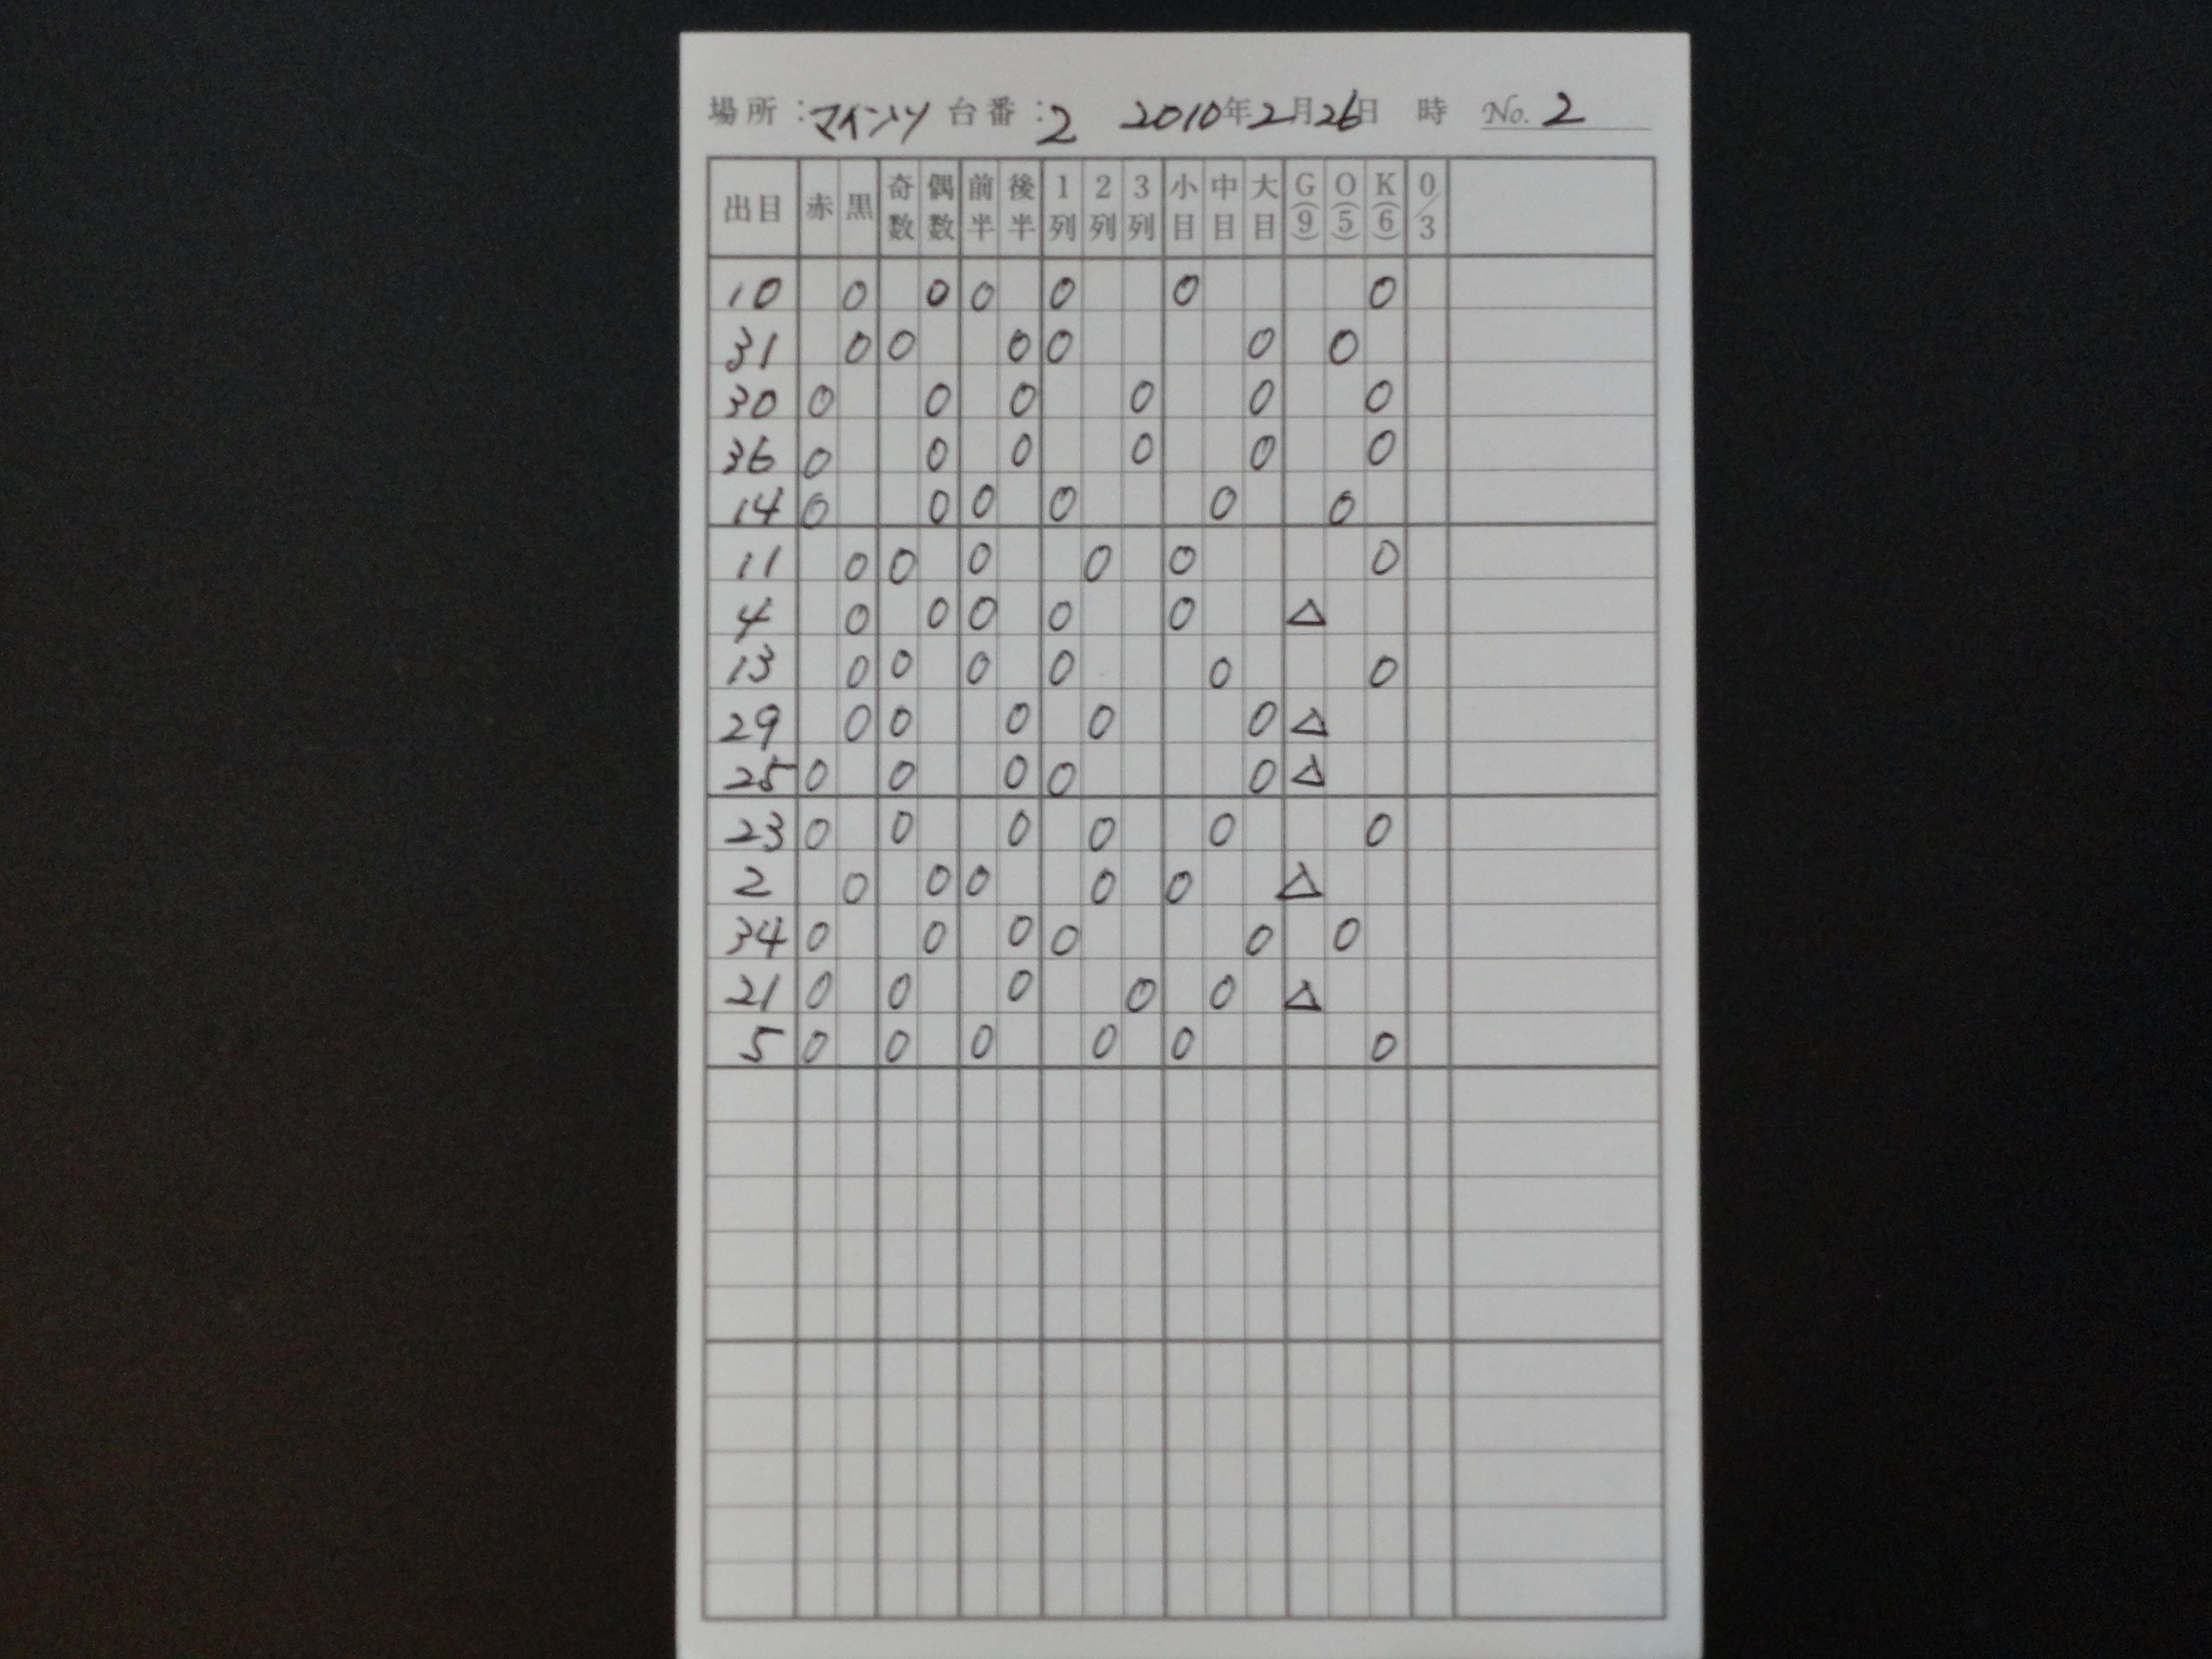 場所：マインツ 台番：2 2010年2月26日 時 No. 2
出目 赤 黒 奇数 偶数 前半 後半 1列 2列 3列 小目 中目 大目 G(9) O(5) K(6) 0/3
10 0 0 0 0 0 0
31 0 0 0 0 0 0
30 0 0 0 0 0 0
36 0 0 0 0 0 0
14 0 0 0 0 0 0
11 0 0 0 0 0 0
4 0 0 0 0 0 △
13 0 0 0 0 0 0
29 0 0 0 0 0 △
25 0 0 0 0 0 △
23 0 0 0 0 0 0
2 0 0 0 0 0 △
34 0 0 0 0 0 0
21 0 0 0 0 0 △
5 0 0 0 0 0 0